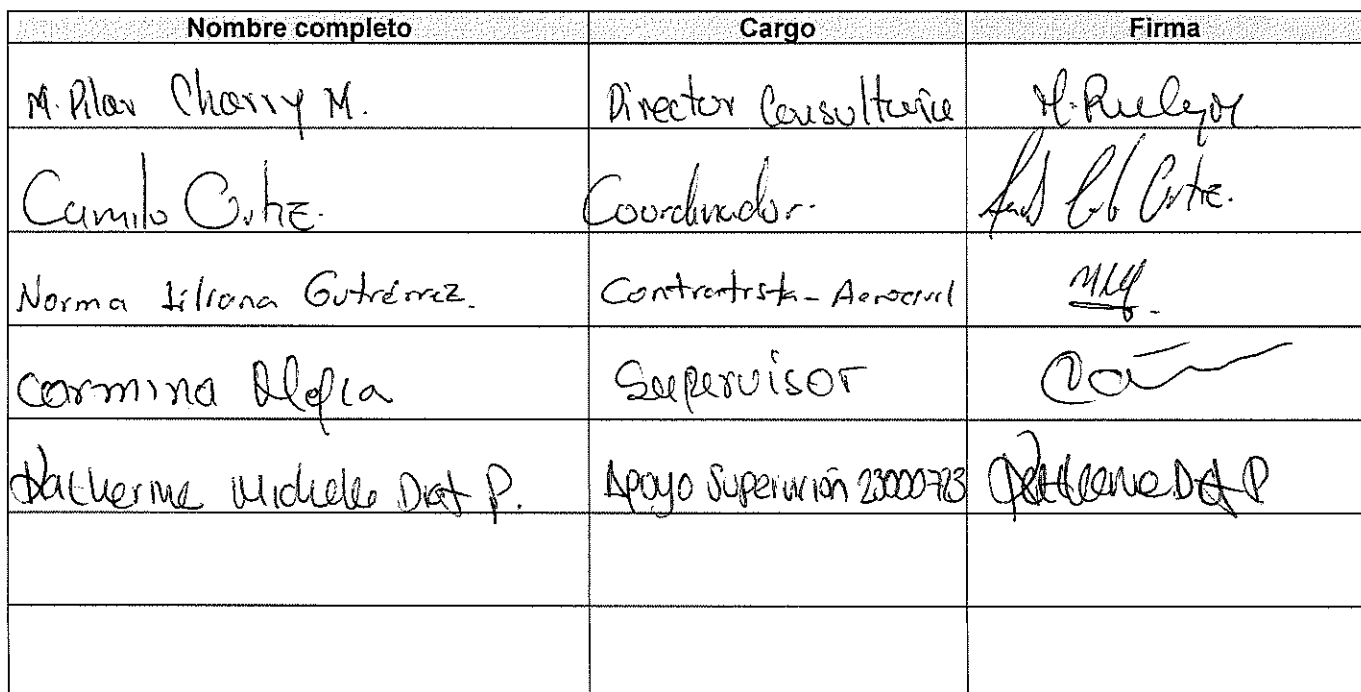 Nombre completo Cargo Firma
M. Pilar Charry M. Director Consultoria
Camilo Ortiz. Coordinador. Ortiz.
Norma Liliana Gutiérrez. Contratista - Aerocivil
Carmina Supervisor
Katherine Michelle Diaz P. Apoyo Supervisión 23000723 Katherine Diaz P